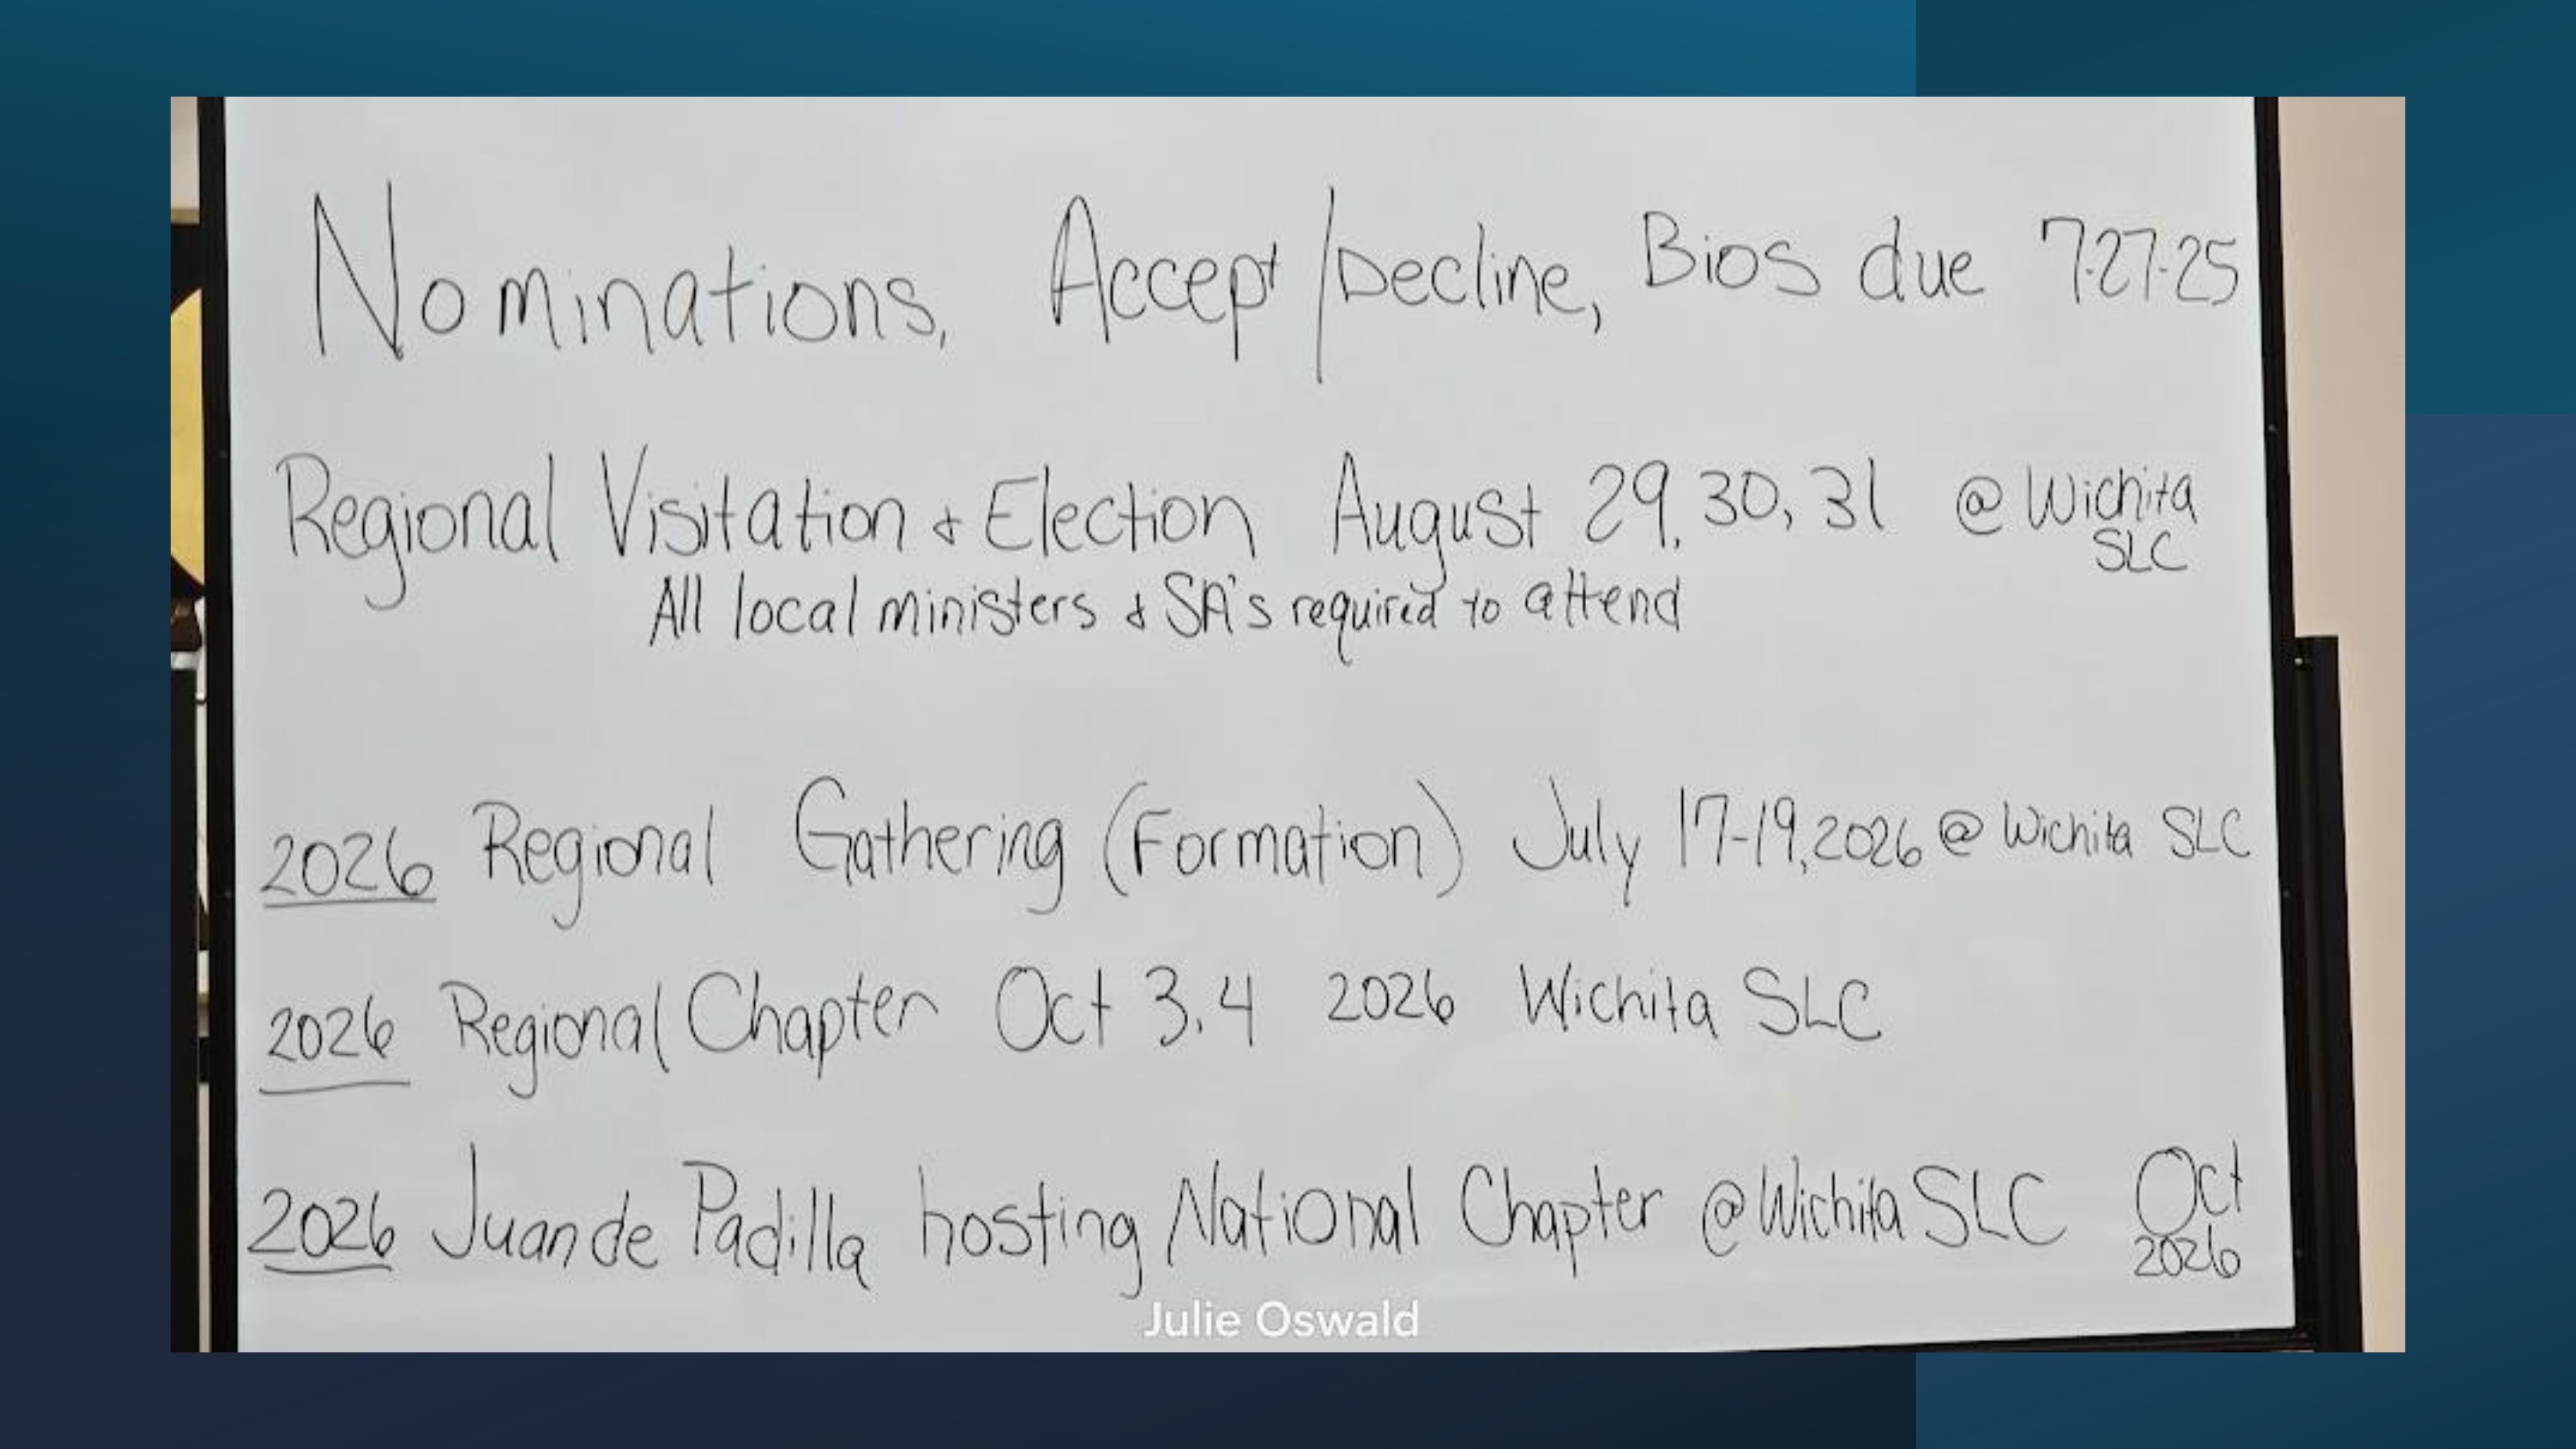 Nominations, Accept/Decline, Bios due 7-27-25
Regional Visitation & Election August 29, 30, 31 @ Wichita
SLC
All local ministers & SA's required to attend
2026 Regional Gathering (Formation) July 17-19, 2026 @ Wichita SLC
2026 Regional Chapter Oct 3, 4 2026 Wichita SLC
2026 Juan de Padilla hosting National Chapter @ Wichita SLC Oct
2026
Julie Oswald